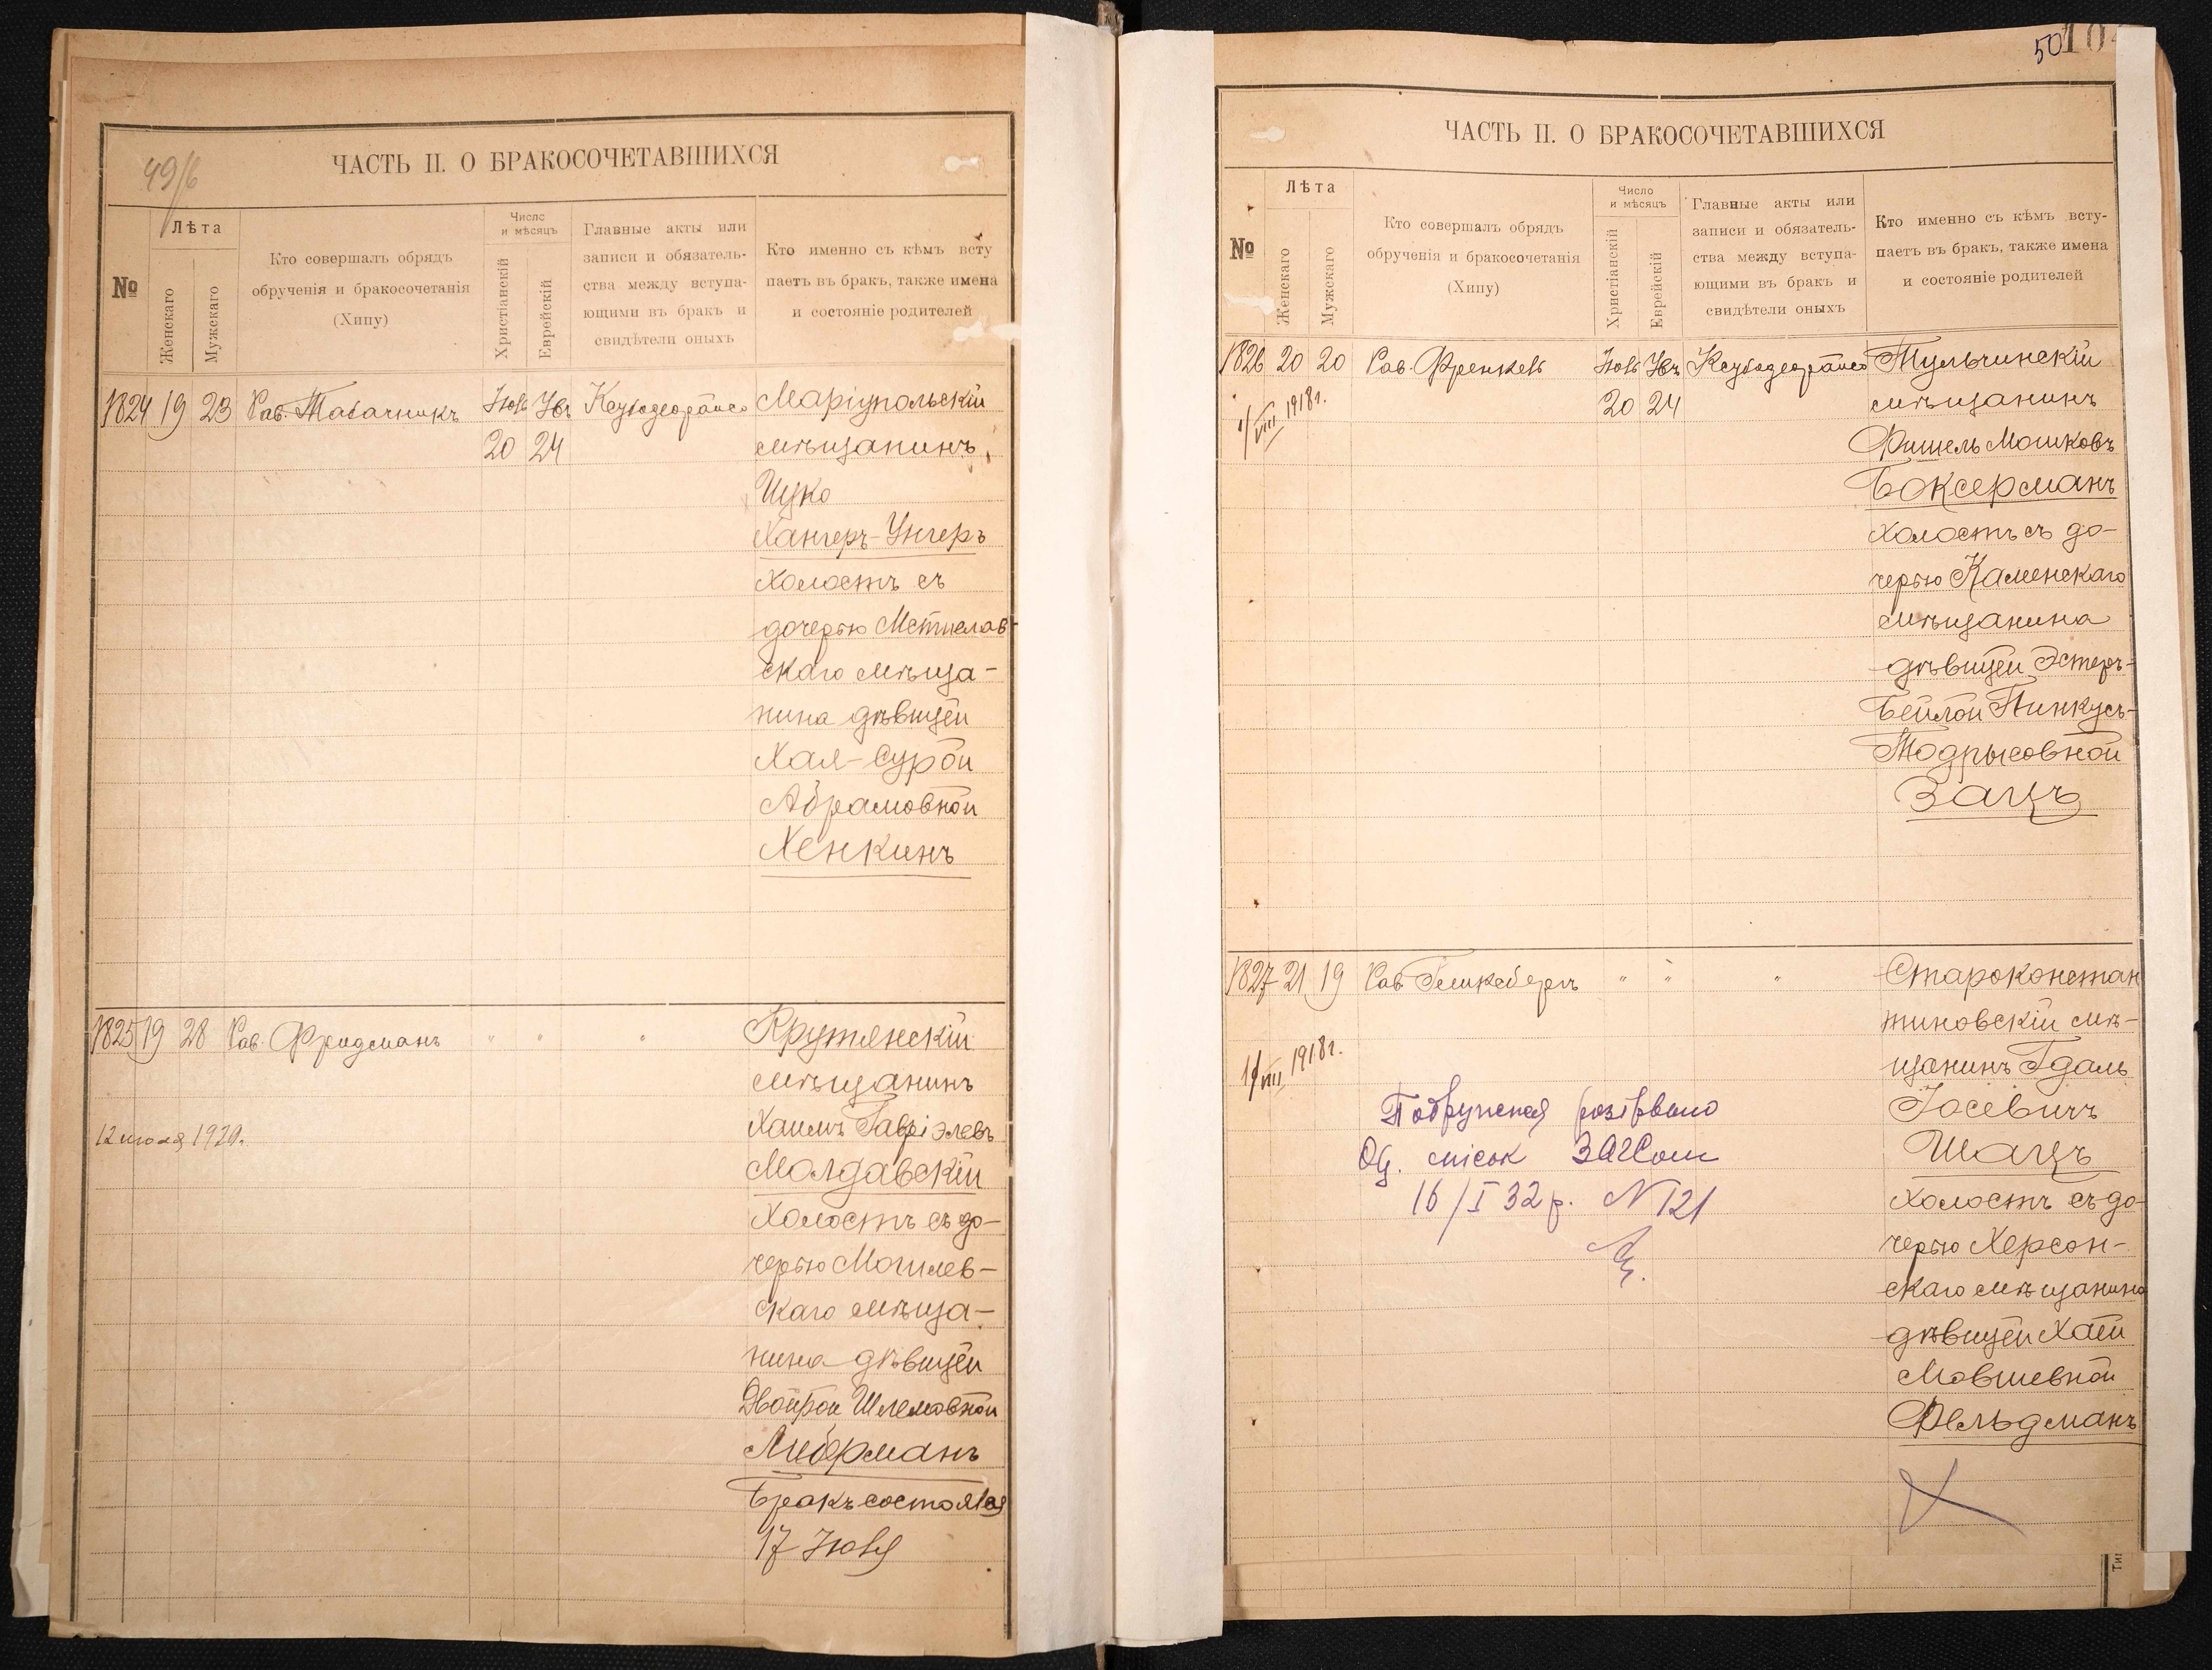 49/б
ЧАСТЬ II. О БРАКОСОЧЕТАВШИХСЯ
№
Лѣта
Женскаго
Мужскаго
Кто совершалъ обрядъ
обрученія и бракосочетанія
(Хипу)
Число
и мѣсяцъ
Христіанскій
Еврейскій
Главные акты или
записи и обязатель-
ства между вступа-
ющими въ бракъ и
свидѣтели оныхъ
Кто именно съ кѣмъ всту
паетъ въ бракъ, также имена
и состояніе родителей
1824 19 23 Рав. Табачникъ
20 24
Маріупольскій
мѣщанинъ
Ицко
Хангеръ-Унгеръ
холостъ съ
дочерью Мстислав-
скаго мѣща-
нина дѣвицей
Хая-Сурой
Абрамовной
Хенкинъ
1825 19 28 Рав. Фридманъ " " "
12 июля 1920.
Крутянскій
мѣщанинъ
Хаимъ Гавріэлевъ
Молдавскій
холостъ съ до-
черью Могилев-
скаго мѣща-
нина дѣвицей
Двойрой Шлемовной
Либерманъ
Бракъ состоялся
17 Іюля
50
10
ЧАСТЬ II. О БРАКОСОЧЕТАВШИХСЯ
№
Лѣта
Женскаго
Мужскаго
Кто совершалъ обрядъ
обрученія и бракосочетанія
(Хипу)
Число
и мѣсяцъ
Христіанскій
Еврейскій
Главные акты или
записи и обязатель-
ства между вступа-
ющими въ бракъ и
свидѣтели оныхъ
Кто именно съ кѣмъ всту-
паетъ въ бракъ, также имена
и состояніе родителей
1826 20 20 Рав. Френкель
20 24
VIII 1918г.
Тульчинскій
мѣщанинъ
Фишель Мошковъ
Боксерманъ
холостъ съ до-
черью Каменскаго
мѣщанина
дѣвицей Эстеръ-
Бейлой Пинкусъ-
Тодрысовной
Зацъ
1827 21 19 Рав. " " "
VIII 1918г.
Староконстан
тиновскій мѣ-
щанинъ Гдаль
Іосевичъ
Шацъ
холостъ съ до-
черью Херсон-
скаго мѣщанина
дѣвицей Хаей
Мовшевной
Фельдманъ
розірвано
Од. міськ ЗАГСом
16/I 32 р. N 121